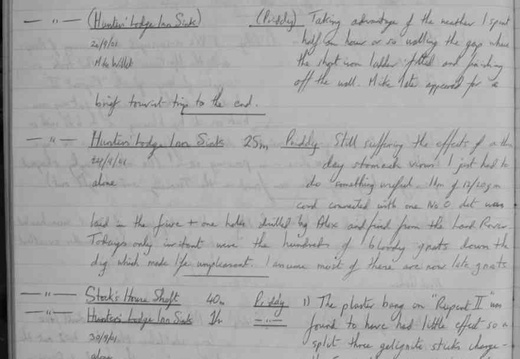 — " — (Hunters' Lodge Inn Sink) (Priddy) Taking advantage of the weather I spent
half an hour or so walling the gap where
Mike Willett the short iron ladder fitted and
off the wall. Mike later appeared for a
brief tourist trip to the end.
— " — Hunters' Lodge Inn Sink 25m Priddy Still suffering the effects of a
alone day stomach virus I just had to
do something useful. 11m of 12/20gm
cord connected with one No.0 det was
laid in the five + one holes drilled by Alex and fired from the Land Rover.
Today's only irritant were the hundreds of bloody gnats down the
dig which made life unpleasant. I assume most of these are now late gnats
— " — Stock's House Shaft 40m Priddy 1) The plaster bang on "Riposte II" was
— " — Hunters' Lodge Inn Sink 1h — " — found to have had little effect so a
split three gelignite sticks charge
alone